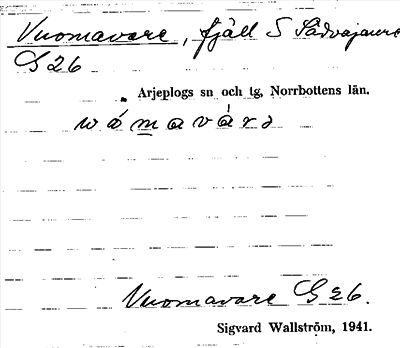 Vuomavare, fjäll S Sädvajaure
G 26
Arjeplogs sn och tg, Norrbottens län.
wómavárə
Vuomavare G 26.
Sigvard Wallström, 1941.